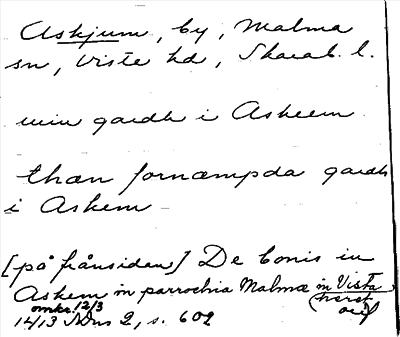 Askjum, by, Malma
sn, Viste hd, Skarab. l.
min gardh i Askeem
then fornæmpda gardh
i Askem
[på frånsidan] De bonis in
Askem in parrochia Malmæ in Vista
omkr. 12/3
1413 NDns 2, s. 602